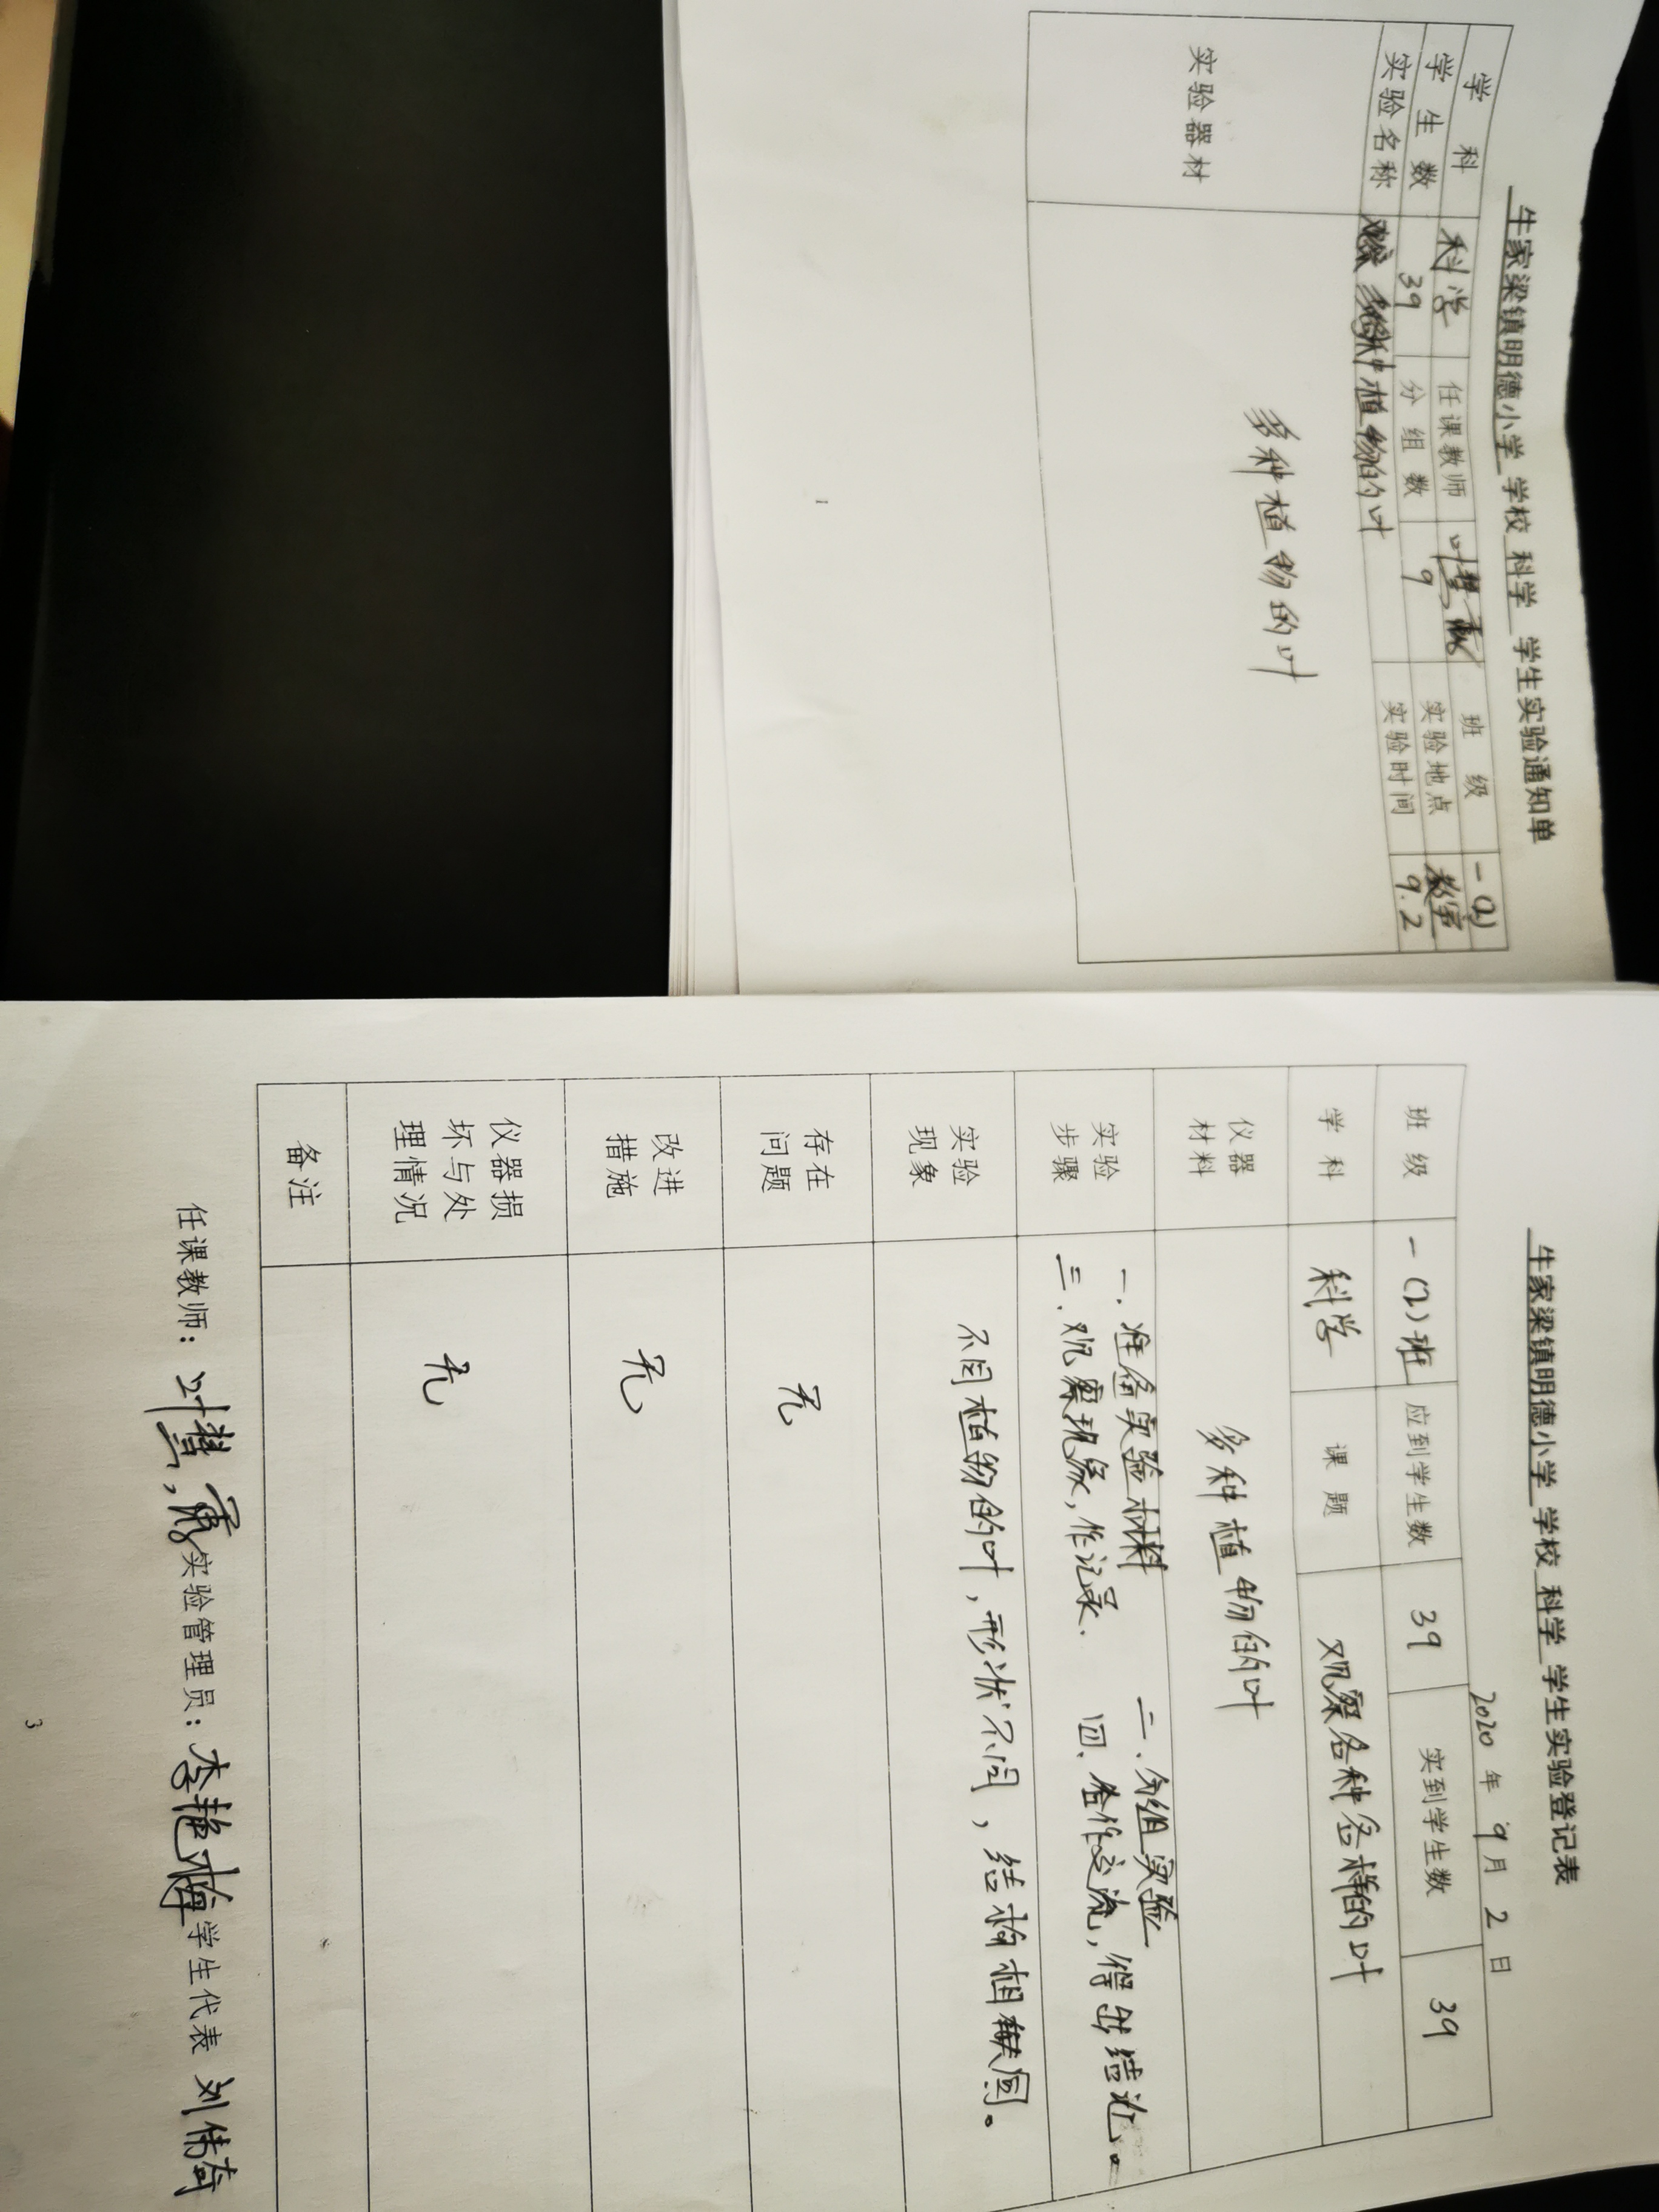 牛家梁镇明德小学 学校 科学 学生实验通知单
学 科 科学 任课教师 班 级 一(2)
学 生 数 39 分 组 数 9 实验地点 教室
实验名称 观察多种植物的叶 实验时间 9.2
实验器材 多种植物的叶
1
牛家梁镇明德小学 学校 科学 学生实验登记表
2020 年 9 月 2 日
班 级 一(2)班 应到学生数 39 实到学生数 39
学 科 科学 课 题 观察各种各样的叶
仪器
材料 多种植物的叶
实验
步骤
一.准备实验材料 二.分组实验
三.观察现象,作记录. 四.合作交流,得出结论。
实验
现象
不同植物的叶,形状不同,结构相似。
存在
问题 无
改进
措施 无
仪器损
坏与处
理情况 无
备注
任课教师: 叶 实验管理员:李艳梅 学生代表 刘伟奇
3